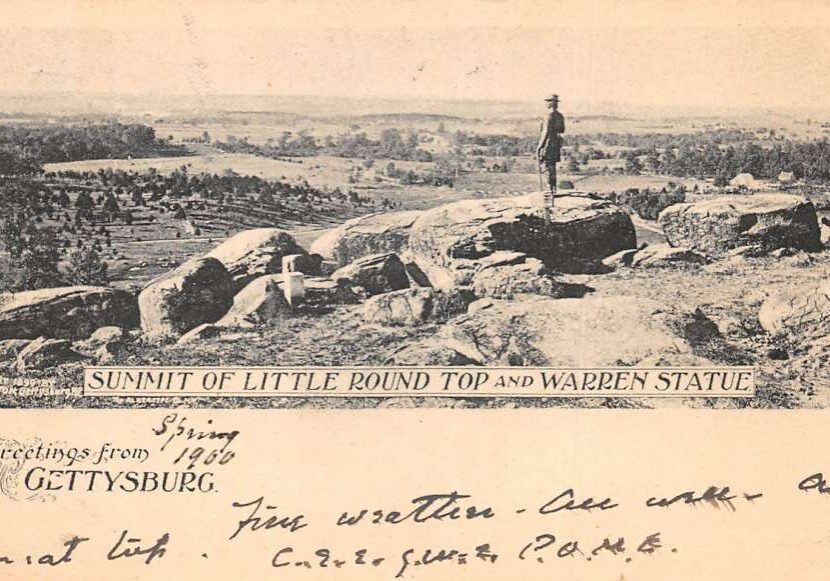 SUMMIT OF LITTLE ROUND TOP AND WARREN STATUE
Spring
reetings from 1900
GETTYSBURG.
Fine weather - All well -
at top. C.E.E. G.W.E. P.O.M.E.